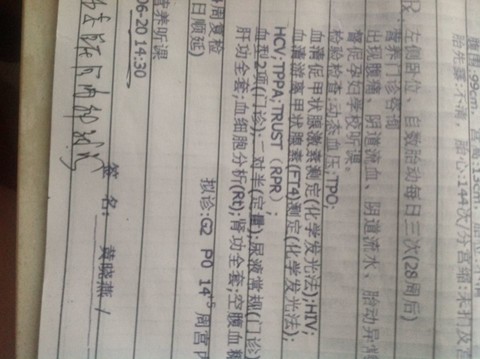 胎心:144次/分宫缩未扪及
左侧卧位、自数胎动每日三次(28周后)
营养门诊咨询
出现腹痛、阴道流血、阴道流水、胎动异
督促孕妇学校听课。
检验检查:动态血压;TPO;
血清促甲状腺激素测定(化学发光法);HIV;
血清游离甲状腺素(FT4)测定(化学发光法);
HCV;TPPA;TRUST（RPR）;
血型2项(门诊);二对半(定量);尿液常规(门诊)
肝功全套;血细胞分析(Rt);肾功全套;空腹血糖
拟诊:G2 P0 14+5周宫内
周复检
日顺延)
营养听课
06-20 14:30
签名: 黄晓燕 /